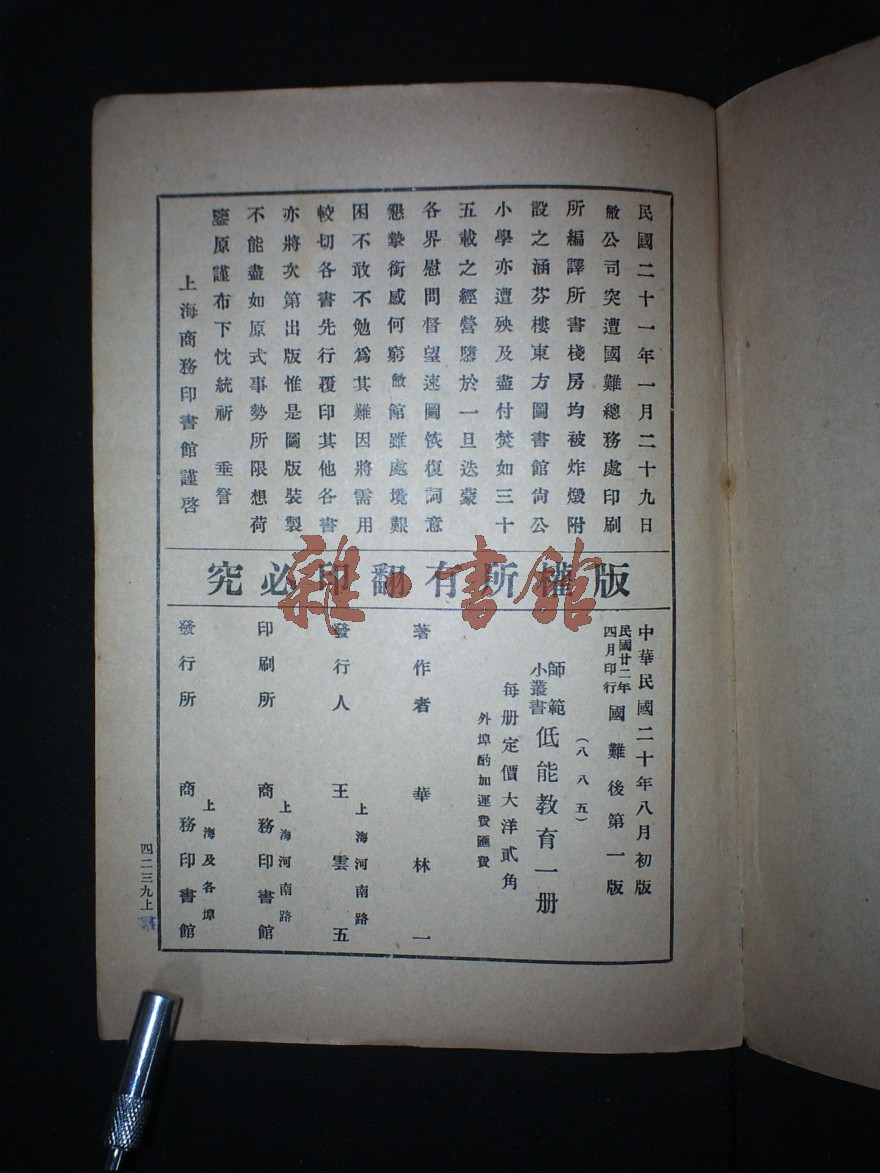 民國二十一年一月二十九日
敝公司突遭國難總務處印刷
所編譯所書棧房均被炸燬附
設之涵芬樓東方圖書館尙公
小學亦遭殃及盡付焚如三十
五載之經營隳於一旦迭蒙
各界慰問督望速圖恢復詞意
懇摯銜感何窮敝館雖處境艱
困不敢不勉爲其難因將需用
較切各書先行覆印其他各書
亦將次第出版惟是圖版裝製
不能盡如原式事勢所限想荷
鑒原謹布下忱統祈 垂詧
上海商務印書館謹啓
版權所有翻印必究
雜·書館
中華民國二十年八月初版
民國廿二年四月印行 國難後第一版
(八八五)
師範小叢書 低能教育一册
每册定價大洋貳角
外埠酌加運費匯費
著作者 華林一
上海河南路
發行人 王雲五
上海河南路
印刷所 商務印書館
上海及各埠
發行所 商務印書館
四二三九上